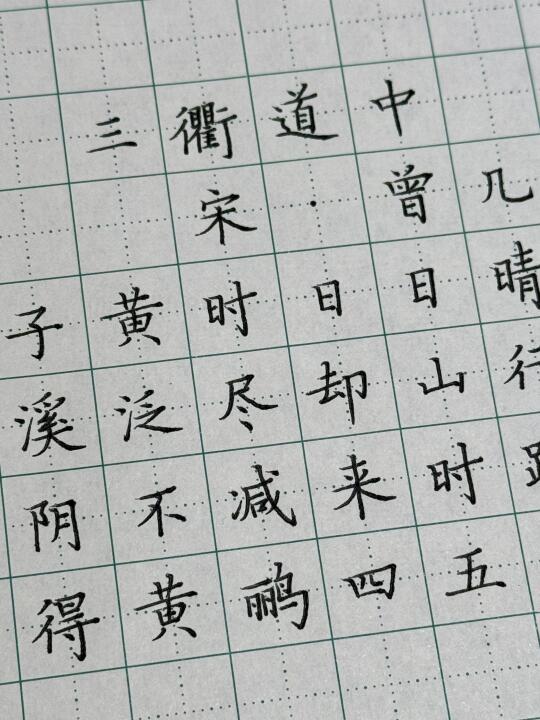 三衢道中
宋·曾几
子黄时日日晴
溪泛尽却山行
阴不减来时路
得黄鹂四五